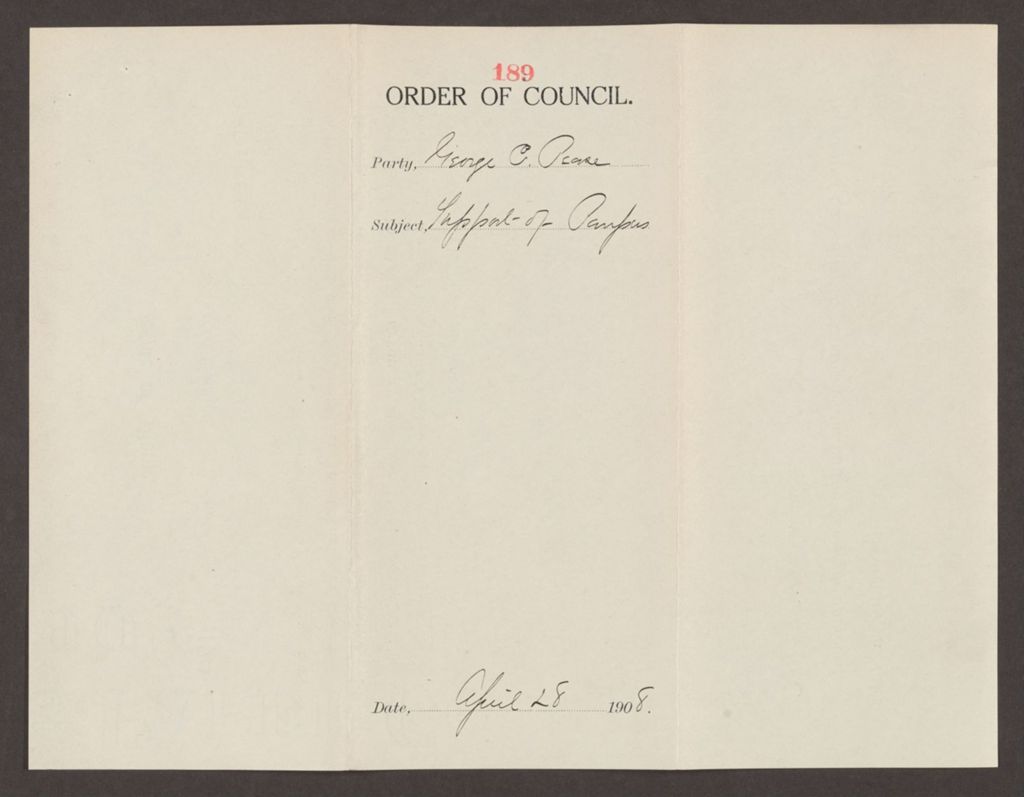 189
ORDER OF COUNCIL.
Party, George C. Pease
Subject, Support of Paupers
Date, April 28 1908.